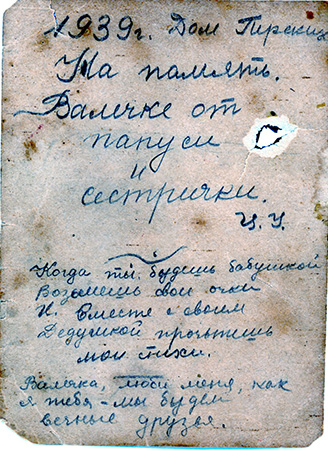 1939г. Дом Пирских
На память.
Валечке от
папуси
и
сестрички.
Ц. У.
Когда ты будешь бабушкой
Возьмешь свои очки
И. Вместе с своим
Дедушкой прочьтешь
мои стихи.
Валячка, люби меня, как
я тебя - мы будем
вечные друзья.